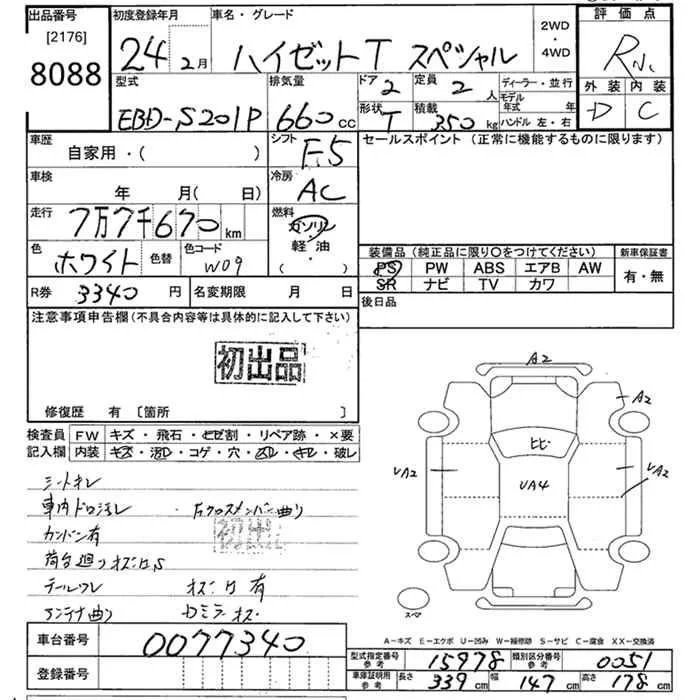 出品番号
[2176]
8088
初度登録年月
24年2月
車名・グレード
ハイゼットT スペシャル
2WD
・
4WD
評価点
R
外装 内装
D C
型式
EBD-S201P
排気量
660cc
ドア 2
形状 T
定員 2人
積載 350kg
ディーラー・並行
モデル年式 年
ハンドル 左・右
車歴
自家用・( )
シフト
F5
セールスポイント (正常に機能するものに限ります)
車検
年 月( 日)
冷房
AC
走行
7万7千670km
燃料
ガソリン
軽・油
・( )
色
ホワイト
色替
色コード
W09
装備品 (純正品に限り○をつけてください)
PS PW ABS エアB AW
SR ナビ TV カワ
新車保証書
有・無
R券 3340円
名変期限 月 日
後日品
注意事項申告欄(不具合内容等は具体的に記入して下さい)
初出品
修復歴 有 [箇所 ]
検査員記入欄
FW キズ・飛石・ヒビ割・リペア跡・×要
内装 キズ・汚レ・コゲ・穴・スレ・キレ・破レ
シートキレ
車内ドロ汚レ
Fクロスメンバー曲り
初出品
カンバン有
荷台廻り
テールワレ
有
アンテナ曲り
A2
A2
ヒビ
UA2
UA4
UA2
スペア
A-キズ E-エクボ U-凹み W-補修跡 S-サビ C-腐食 XX-交換済
車台番号
0077340
登録番号
型式指定番号
参考
15978
類別区分番号
参考
0051
車庫証明用
参考
長さ 339cm 幅 147cm 高さ 178cm